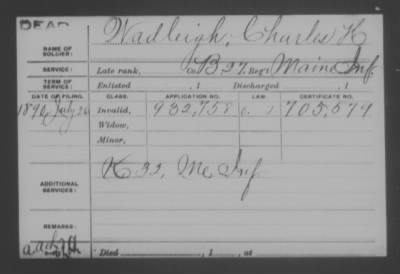 DEAD
NAME OF SOLDIER: Wadleigh, Charles H
SERVICE: Late rank, Co. B, 27, Reg't Maine Inf
TERM OF SERVICE: Enlisted , 1 Discharged , 1
DATE OF FILING. CLASS. APPLICATION NO. LAW. CERTIFICATE NO.
1890, July 26 Invalid, 932,758 705,579
Widow,
Minor,
ADDITIONAL SERVICES: K 32, Me Inf
REMARKS:
Died , 1 , at